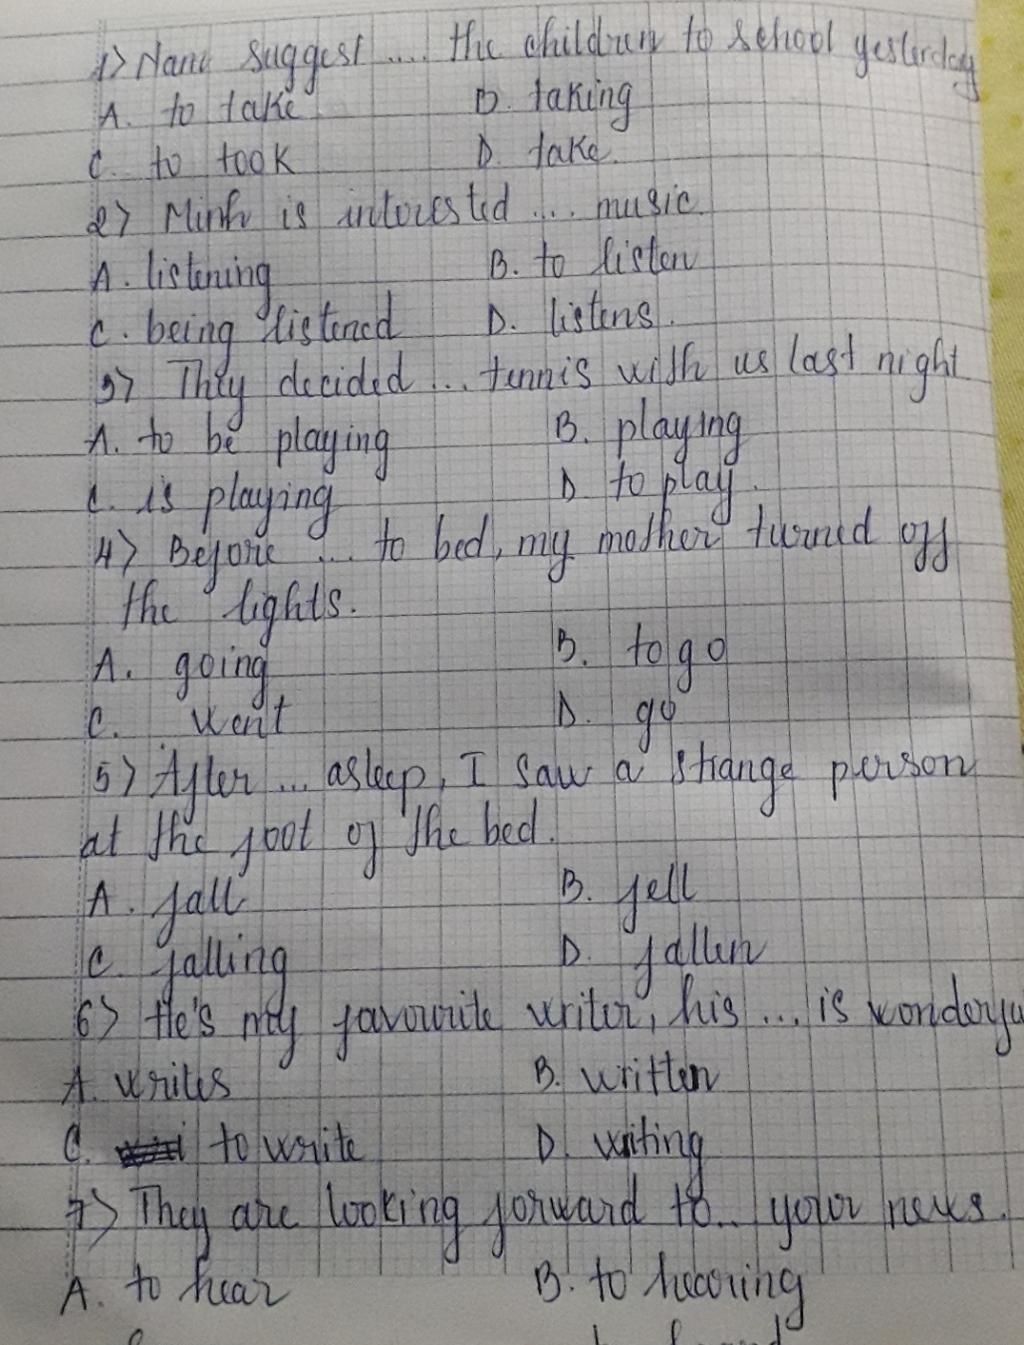 1) Nam suggest .... the children to school yesterday
A. to take B. taking
C. to took D. take.
2) Minh is interested ... music.
A. listening B. to listen
C. being listened D. listens.
3) They decided ... tennis with us last night
A. to be playing B. playing
C. is playing D. to play.
4) Before ... to bed, my mother turned off
the lights.
A. going B. to go
C. went D. go
5) After ... asleep, I saw a strange person
at the foot of the bed.
A. fall B. fell
C. falling D. fallen
6) He's my favourite writer, his ... is wonderfu
A. writes B. written
C. to write D. writing
7) They are looking forward to... your news.
A. to hear B. to hearing